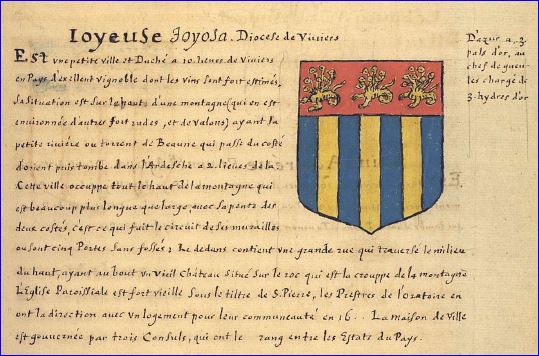 Ioyeuse Joyosa. Diocese de Viviers
Est une petite ville et Duché a 10. lieues de Viviers
en Pays d'exellent vignoble dont les vins sont fort estimés,
sa Situation est sur le haut d'une montagne (qui en est
environnée d'autres fort rudes, et de valons) ayant la
petite riviére ou torrent de Beaune qui passe du costé
d'orient puis tombe dans l'Ardesche a 2. lieues de la
Cette ville occuppe tout le haut de la montagne qui
est beaucoup plus longue que large, avec sa pente des
deux costés, c'est ce qui fait le circuit de ses murailles
ou sont cinq Portes sans fossés; Le dedans contient une grande rue qui traverse le milieu
du haut, ayant au bout un vieil Château situé sur le roc qui est la crouppe de la montagne
L'Eglise Paroissiale est fort vieille sous le tiltre de S. Pierre, les Prestres de l'oratoire en
ont la direction avec un logement pour leur communeauté en 16.. La maison de Ville
est gouvernée par trois Consuls, qui ont le rang entre les Estats du Pays.
D'azur a .3.
pals d'or, au
chef de gueu-
les chargé de
3. hydres d'or